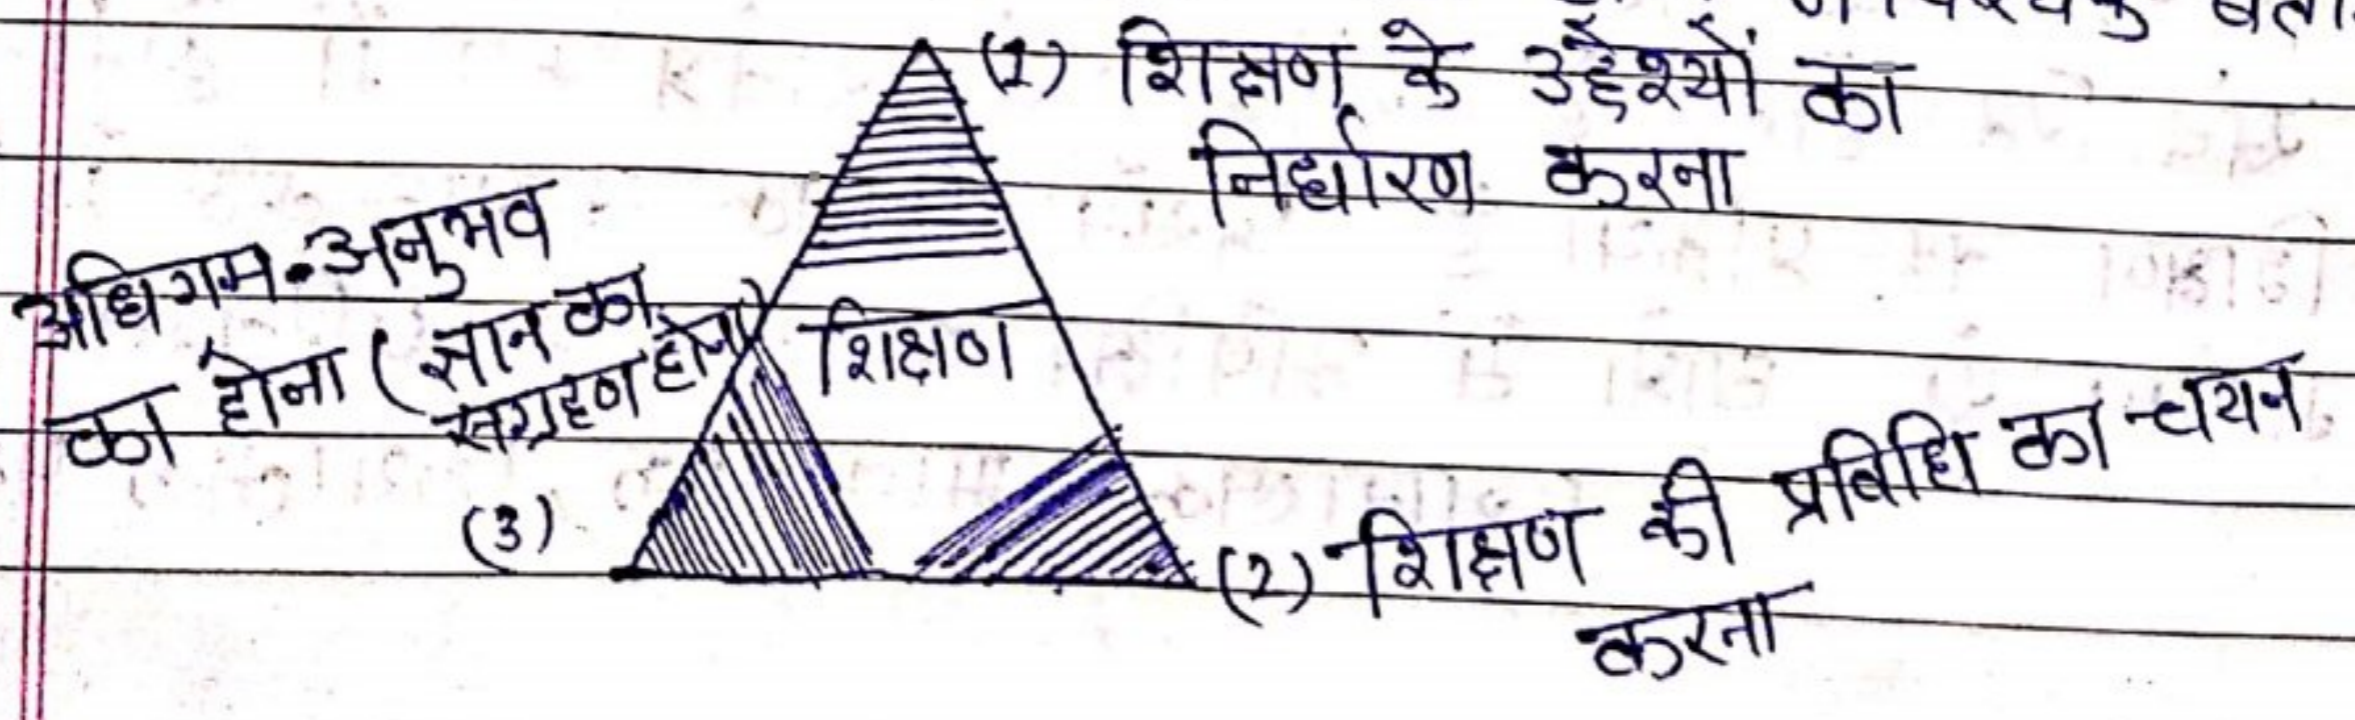 (1) शिक्षण के उद्देश्यों का
निर्धारण करना
अधिगम-अनुभव
का होना (ज्ञान का
संग्रहण होना)
शिक्षण
(3)
(2) शिक्षण की प्रविधि का चयन
करना